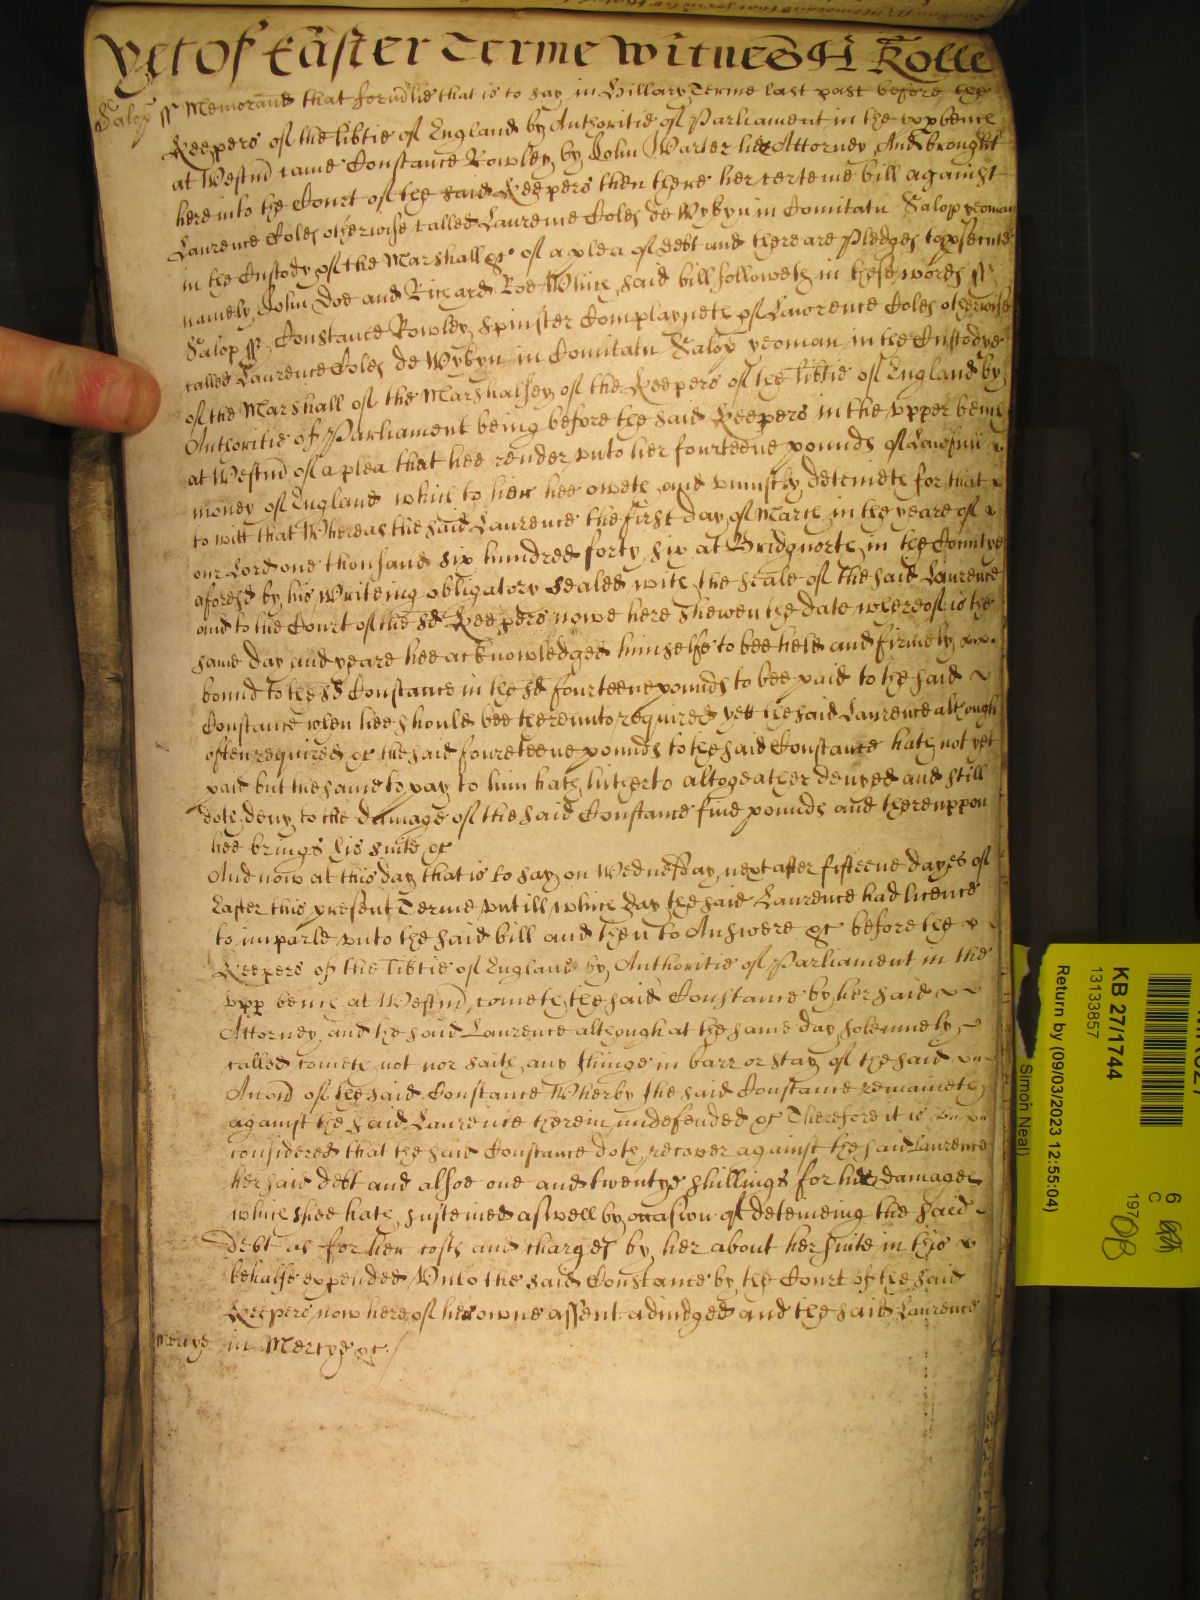 yet Of Easter Terme Witnes H Rolle
Salop ss Memorand that formlie that is to say in Hillary Terme last past before the
Keepers of the libtie of England by Authoritie of Parliament in the upp bench
at Westm came Constance Rowley by John Warter her Attorney And brought
here into the Court of the said Keepers then there her certeine bill against
Laurence Coles otherwise called Laurence Coles de Wykyn in Comitatu Salop yeoman
in the Custody of the Marshall &c of a plea of debt and there are Pledges to psecute
namely John Doe and Richard Roe Which said bill followeth in these words ss
Salop ss Constance Rowley Spinster Complayneth of Lawrence Coles otherwise
called Laurence Coles de Wykyn in Comitatu Salop yeoman in the Custodye
of the Marshall of the Marshalsey of the Keepers of the libtie of England by
Authoritie of Parliament being before the said Keepers in the upper bench
at Westm of a plea that hee render unto her fourteene pounds of Lawfull
money of England which to her hee oweth and uniustly deteineth for that
to witt that Whereas the said Laurence the first day of March in the yeare of
our Lord one thousand six hundred forty six at Bridgnorth in the Countye
aforesd by his Writeing obligatory sealed with the seale of the said Laurence
and to the Court of the sd Keepers nowe here shewen the date whereof is the
same day and yeare hee acknowledged himselfe to bee held and firmely
bound to the sd Constance in the sd fourteene pounds to bee paid to the said
Constance when hee should bee thereunto required yett the said Laurence although
often required &c the said foureteene pounds to the said Constance hath not yet
paid but the same to pay to him hath hitherto altogeather denyed and still
doth deny to the damage of the said Constance five pounds and thereuppon
hee brings his suite &c
And now at this day that is to say on Wednesday next after fifteene dayes of
Easter this present Terme untill which day the said Laurence had licence
to imparle unto the said bill and then to Answere &c before the
Keepers of the libtie of England by Authoritie of Parliament in the
upp bench at Westm cometh the said Constance by her said
Attorney and the said Laurence although at the same day solemnely
called cometh not nor saith any thinge in barr or stay of the said
Accon of the said Constance Wherby the said Constance remaineth
against the said Laurence therein undefended &c Therefore it is
considered that the said Constance doth recover against the said Laurence
her said debt and alsoe one and twentye shillings for her damages
which shee hath susteined aswell by occasion of deteineing the said
debt as for her costs and charges by her about her suite in this
behalfe expended Unto the said Constance by the Court of the said
Keepers now here of her owne assent adiudged and the said Laurence
mercye in Mercye &c /
KB 27/1744
13133857
Return by (09/03/2023 12:55:04)
Simon Neal)
6
C
197